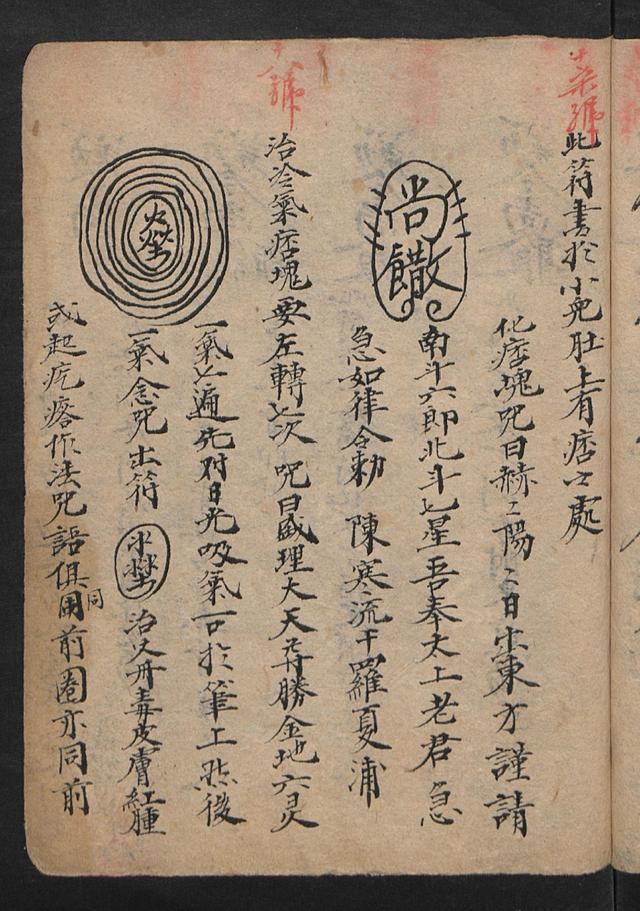 柒號
此符書於小兒肚上有痞之處
化痞塊咒曰赫〻陽〻日出東方謹請
尚
饊
南斗六郎北斗七星吾奉太上老君急
急如律令勅 陳寒流干羅夏浦
八號
治冷氣痞塊要左轉七次 咒曰盛理大天尊勝金地六灵
一氣七遍先對日光吸氣一口於筆上然後
一氣念咒出符 治火丹毒皮膚紅腫
或起疙瘩作法咒語俱同用前圈亦同前